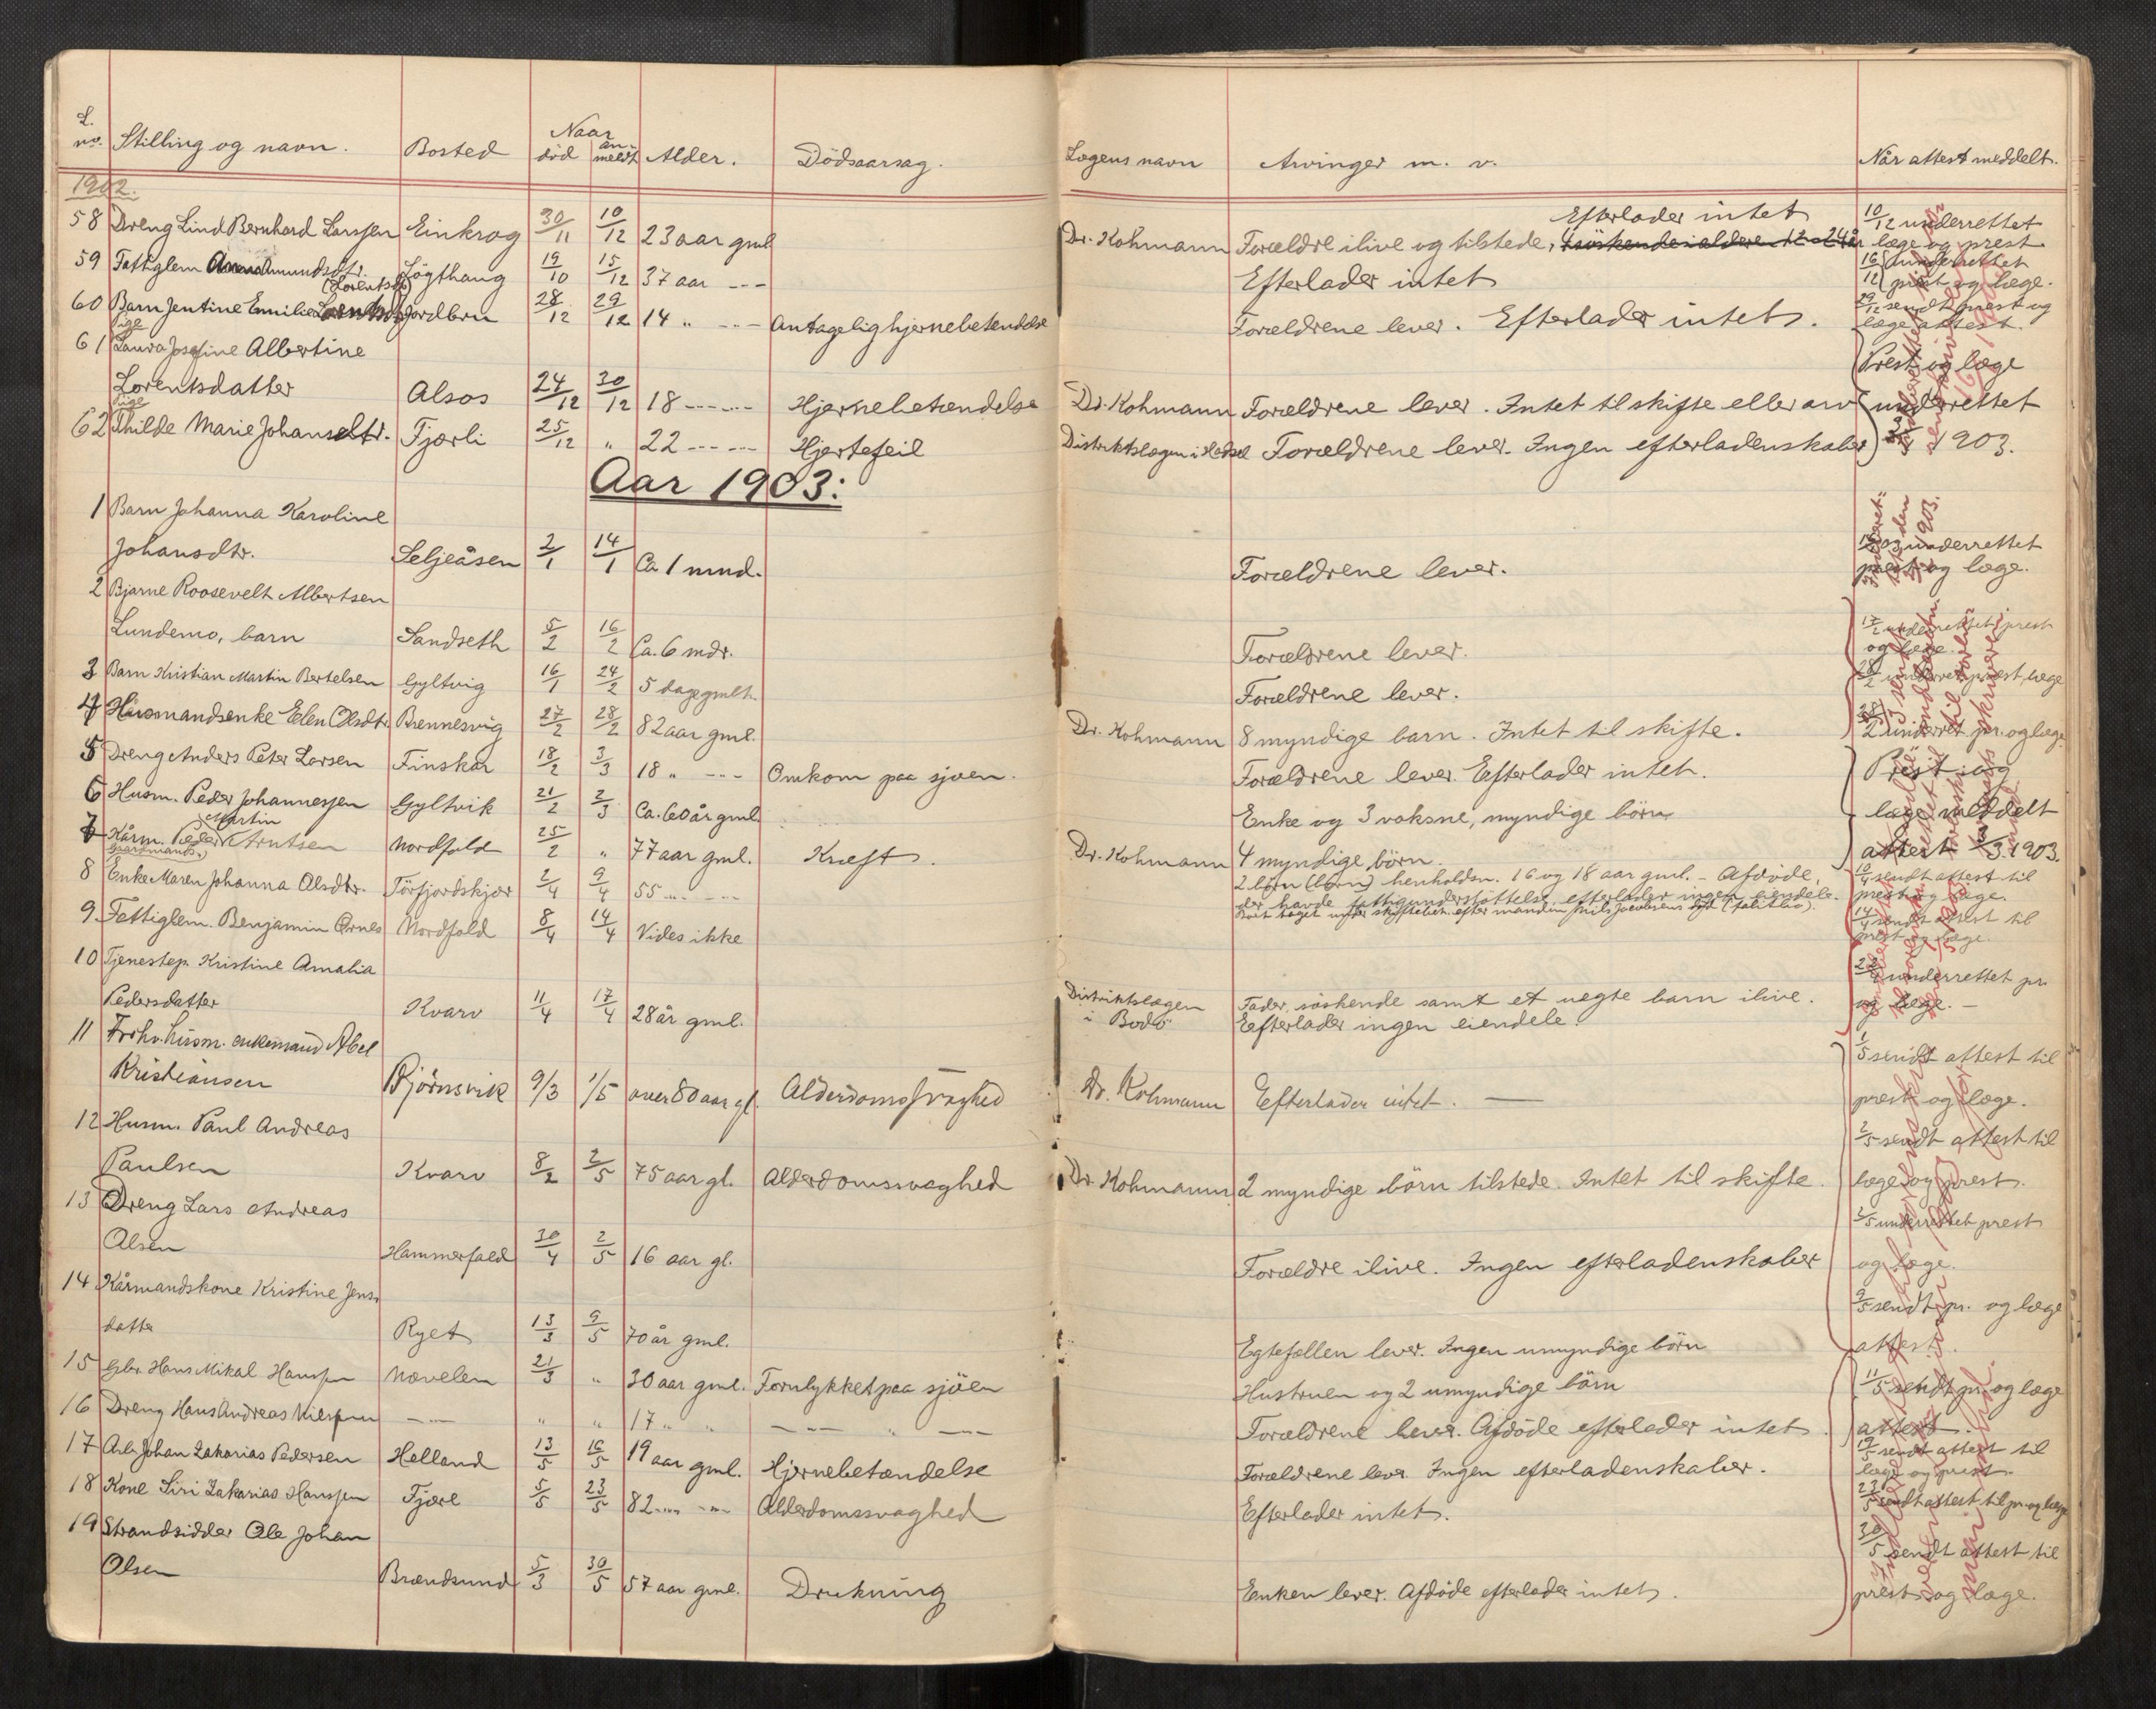 L. no. Stilling og navn. Bosted Naar død an-meldt Alder. Dödsaarsag. Lægens navn Arvinger m. v. Når attest meddelt.
1902.
58 Dreng Lind Bernhard Larssen Einkrog 30/11 10/12 23 aar gml Dr. Kohmann Forældre ilive og tilstede, 4 söskende i alderen 12-24 år Efterlader intet 10/12 underrettet læge og prest
59 Fattiglem Anna Amundsdtr. (Lorentsdtr) Løgthaug 19/10 15/12 37 aar --- Efterlader intet 16/12 underrettet prest og læge.
60 Barn Jentine Emilie Jordbru 28/12 29/12 14 " --- Antagelig hjernebetendelse Forældrene lever. Efterlader intet. 29/12 sendt prest og læge attest.
61 Pige Laura Josefine Albertine
Lorentsdatter Alsos 24/12 30/12 18 --- Hjernebetændelse Dr. Kohmann Forældrene lever. Intet til skifte eller arv Prest og læge underrettet
62 Pige Thilde Marie Johansdtr. Fjærli 25/12 " 22 --- Hjertefeil Distriktslægen i Hadsel Forældrene lever. Ingen efterladenskaber 1903.
Aar 1903:
1 Barn Johanna Karoline
Johansdtr. Seljeåsen 2/1 14/1 Ca 1 mnd. Forældrene lever. underrettet prest og læge.
2 Bjarne Roosevelt Albertsen
Lundemo, barn Sandseth 5/2 16/2 Ca. 6 mdr. Forældrene lever. 17/2 underrettet prest og læge.
3 Barn Kristian Martin Bertelsen Gyltvig 16/1 24/2 5 dage gmlt. Forældrene lever. 28/2 underret. prest, læge
4 Husmandsenke Elen Olsdtr. Brennesvig 27/2 28/2 82 aar gml. Dr. Kohmann 8 myndige barn. Intet til skifte. 28/2 underret. pr. og læge
5 Dreng Anders Peter Larsen Finskar 18/2 3/3 18 " --- Omkom paa sjøen. Forældrene lever. Efterlader intet. Prest og
6 Husm. Peder Johannessen Gyltvik 21/2 2/3 Ca. 60 år gml. Enke og 3 voksne, myndige börn læge meddelt
7 Kårm. (Gaardmands) Peder Martin Arntsen Nordfold 25/2 " 77 aar gml. Kræft. Dr. Kohmann 4 myndige börn. attest 3.1903.
8 Enke Maren Johanna Olsdtr. Törfjordskjær 2/4 9/4 55 --- 2 börn (börn) henholdsv. 16 og 18 aar gml. - Afdöde, der havde fattigunderstöttelse, efterlader ingen eiendele. 10/4 sendt attest til prest og læge.
9. Fattiglem. Benjamin Ørnes Nordfold 8/4 14/4 Vides ikke 14/4 sendt attest til prest og læge.
10 Tjenestep. Kristine Amalia
Pedersdatter Kvarv 11/4 17/4 28 år gml. Distriktslægen i Bodö Fader, söskende samt et uegte barn ilive. Efterlader ingen eiendele. 22/4 underrettet pr. og læge. -
11 Forhv. husm. enkemand Abel
Kristiansen Björnsvik 9/3 1/5 over 80 aar gl. Alderdomssvaghed Dr. Kohmann Efterlader intet. 1/5 sendt attest til prest og læge.
12 Husm. Paul Andreas
Paulsen Kvarv 8/2 2/5 75 aar gl. Alderdomssvaghed Dr. Kohmann 2 myndige börn tilstede. Intet til skifte. 2/5 sendt attest til læge og prest.
13 Dreng Lars Andreas
Olsen Hammerfald 30/4 2/5 16 aar gl. Forældre ilive. Ingen efterladenskaber 2/5 underrettet prest og læge.
14 Kårmandskone Kristine Jens-
datter Ryet 13/3 9/5 70 år gml. Egtefellen lever. Ingen umyndige börn 9/5 sendt pr. og læge attest.
15 Gbr. Hans Mikal Hanssen Nævelen 21/3 " 30 aar gml. Forulykket paa sjöen Hustruen og 2 umyndige börn 11/5 sendt pr. og læge
16 Dreng Hans Andreas Nilssen --- " " 17 " " --- " --- Forældrene lever. Afdöde efterlader intet. attest.
17 Arb. Johan Zakarias Pedersen Helland 13/5 16/5 19 aar gml. Hjernebetændelse Forældrene lever. Ingen efterladenskaber. 19/5 sendt attest til læge og prest.
18 Kone Siri Zakarias Hanssen Fjære 5/5 23/5 82 --- Alderdomssvaghed Efterlader intet. 23/5 sendt attest til pr. og læge
19 Strandsidder Ole Johan
Olsen Brændsund 5/3 30/5 57 aar gml. Drukning Enken lever. Afdöde efterlader intet. 30/5 sendt attest til prest og læge.